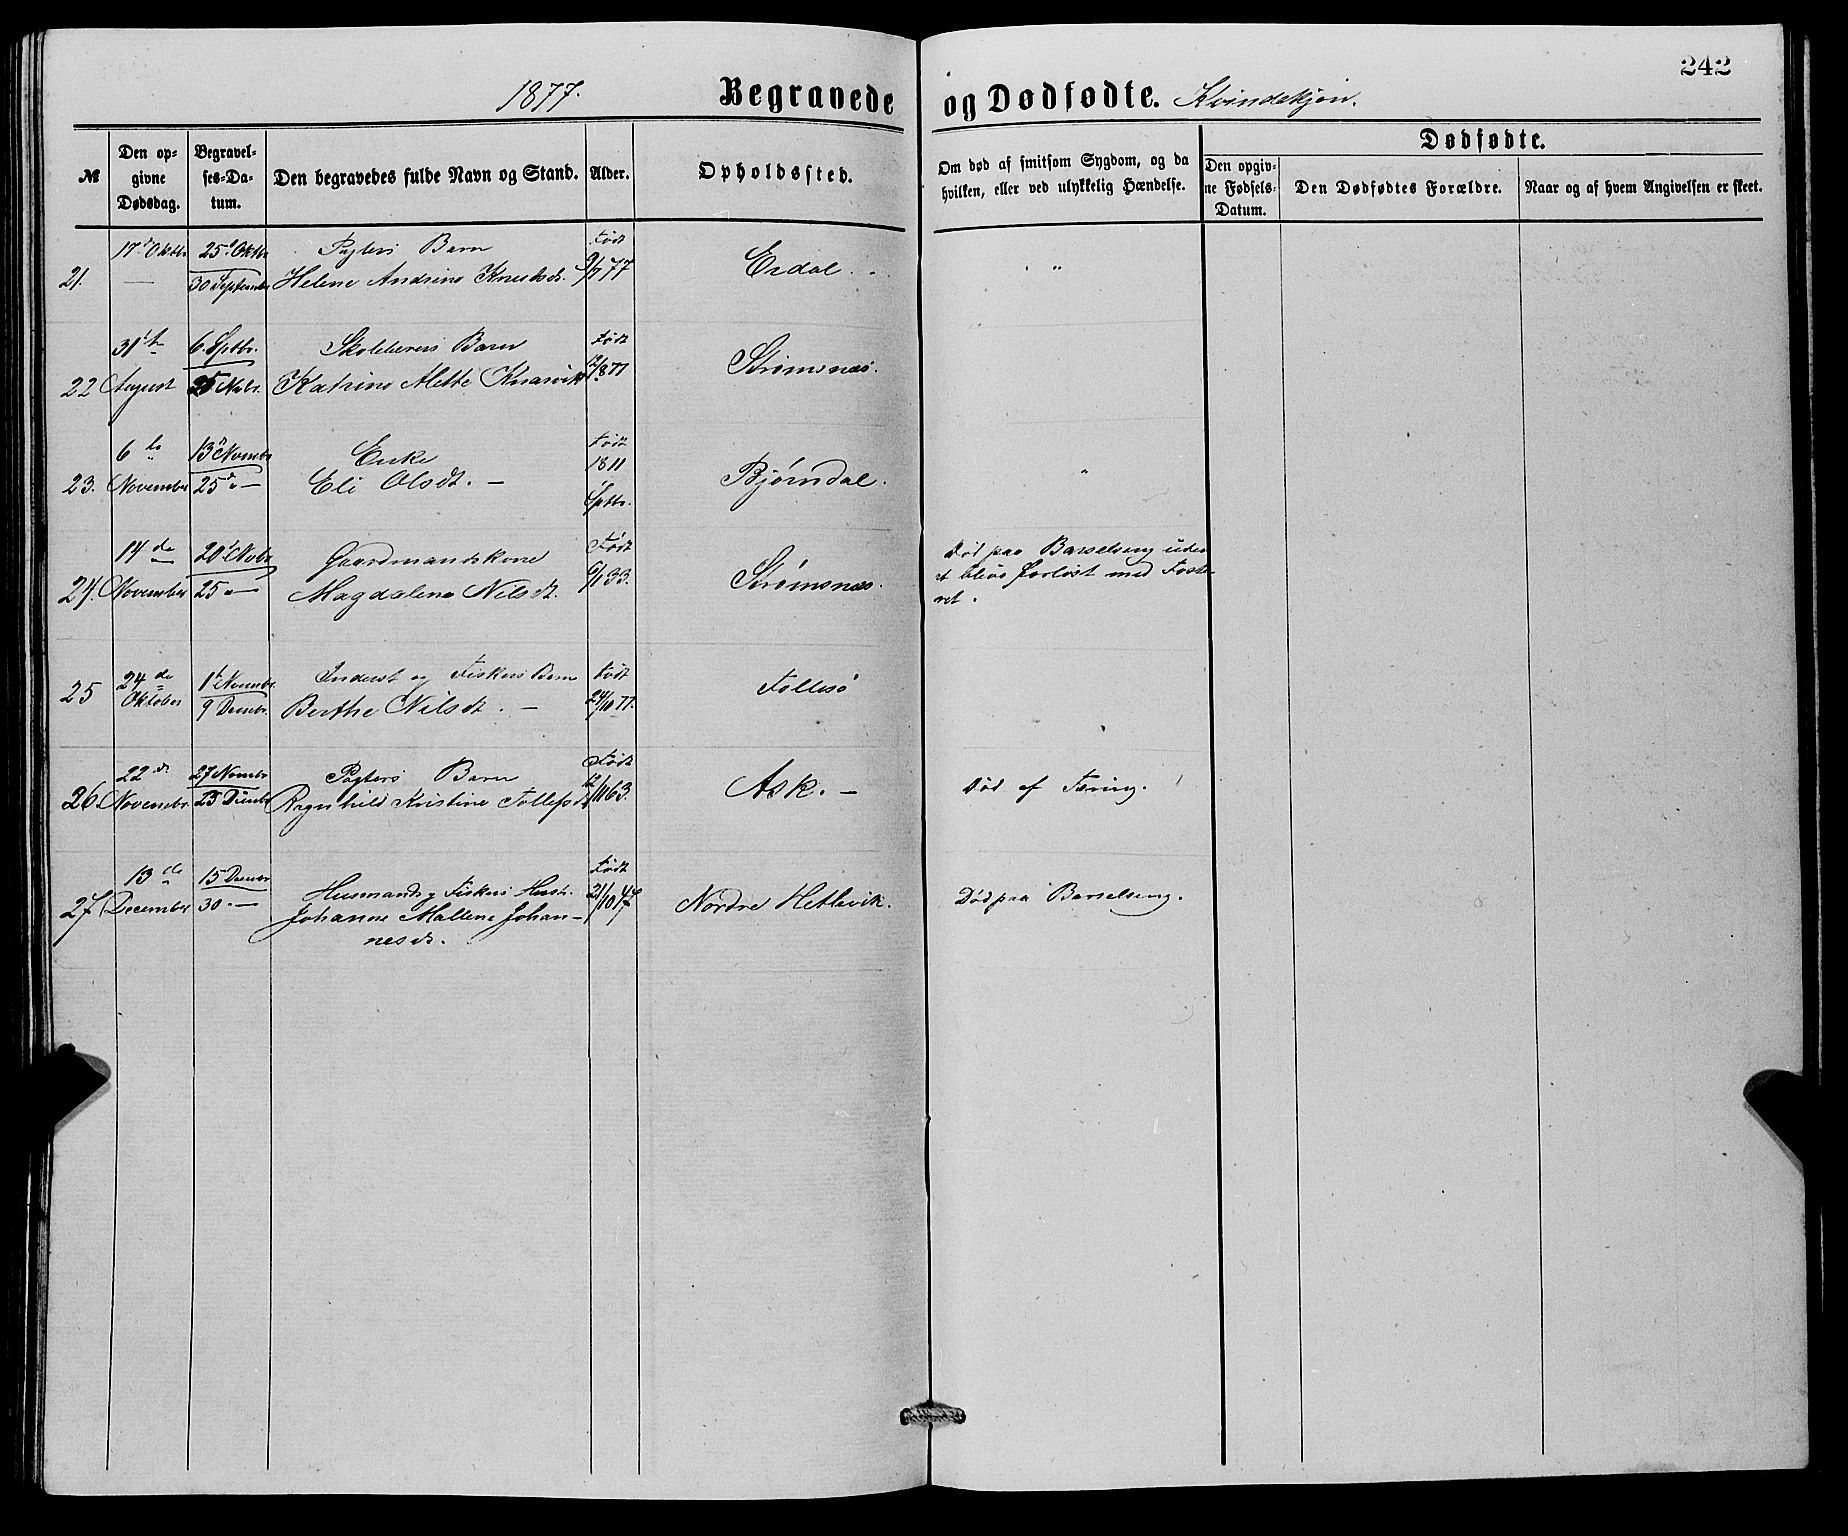 242
1877.
Begravede og Dødfødte. Kvindekjøn.
№
Den op-
givne
Dødsdag.
Begravel-
ses-Da-
tum.
Den begravedes fulde Navn og Stand.
Alder.
Opholdssted.
Om død af smitsom Sygdom, og da
hvilken, eller ved ulykkelig Hændelse.
Dødfødte.
Den opgiv-
ne Fødsels-
Datum.
Den Dødfødtes Forældre.
Naar og af hvem Angivelsen er skeet.
21.
17d Oktbr
—
25d Oktbr
30 Septembr
Pagters Barn
Helene Andrine Knutsdt.
Født
77
Erdal.
"
22
31te
August
6 Sptbr.
25 Nvbr.
Skolelærers Barn
Katrine Alette Knarvik
Født
Strømsnæs.
23.
6te
November
13d Novembr
25d " —
Enke
Eli Olsdt. —
Født
1811
Sptbr.
Bjørndal.
"
24.
14de
November
20d Novbr
25 " —
Gaardmandskone
Magdalena Nilsdt.
Født
33.
Strømsnæs.
Død paa Barselseng uden
at blive forløst med Foste-
ret.
25
24de
Oktober
1t Novembr.
9 Decembr.
Inderst og Fiskers Barn
Berthe Nilsdt. —
Født
24/10 77.
Follesø
26.
22de
Novembr.
27 Novembr
25 Decembr
Pagters Barn
Ragnhild Kristine Tollefsdt
Født
63.
Ask. —
Død af Tæring.
27
13de
December
15 Decembr
30 " —
Husmands og Fiskers Hustr.
Johanne Mallene Johan-
nesdt.
Født
21/10 47
Nordre Hetlevik.
Død paa Barselseng.